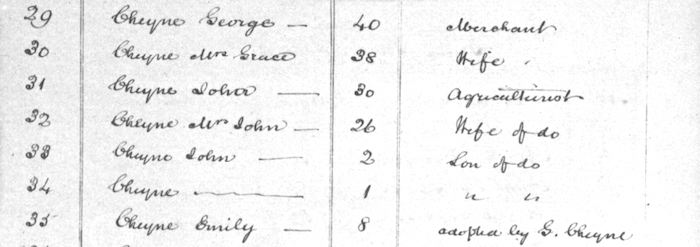 29 Cheyne George — 40 Merchant
30 Cheyne Mrs Grace 38 Wife
31 Cheyne John — 30 Agriculturist
32 Cheyne Mrs John — 26 Wife of do
33 Cheyne John — 2 Son of do
34 Cheyne — 1 " "
35 Cheyne Emily — 8 adopted by G. Cheyne